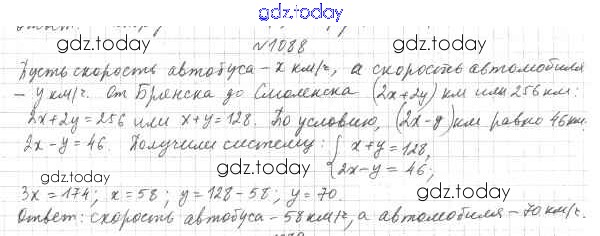 gdz.today
№1088
gdz.today gdz.today
Пусть скорость автобуса - x км/ч, а скорость автомобиля
- y км/ч. От Брянска до Смоленска (2x+2y) км или 256 км:
gdz.today gdz.today
2x+2y=256 или x+y=128. По условию, (2x-y) км равно 46 км.
2x-y=46. Получили систему: { x+y=128,
2x-y=46;
gdz.today gdz.today
3x=174; x=58; y=128-58; y=70.
Ответ: скорость автобуса - 58 км/ч, а автомобиля - 70 км/ч.
gdz.today